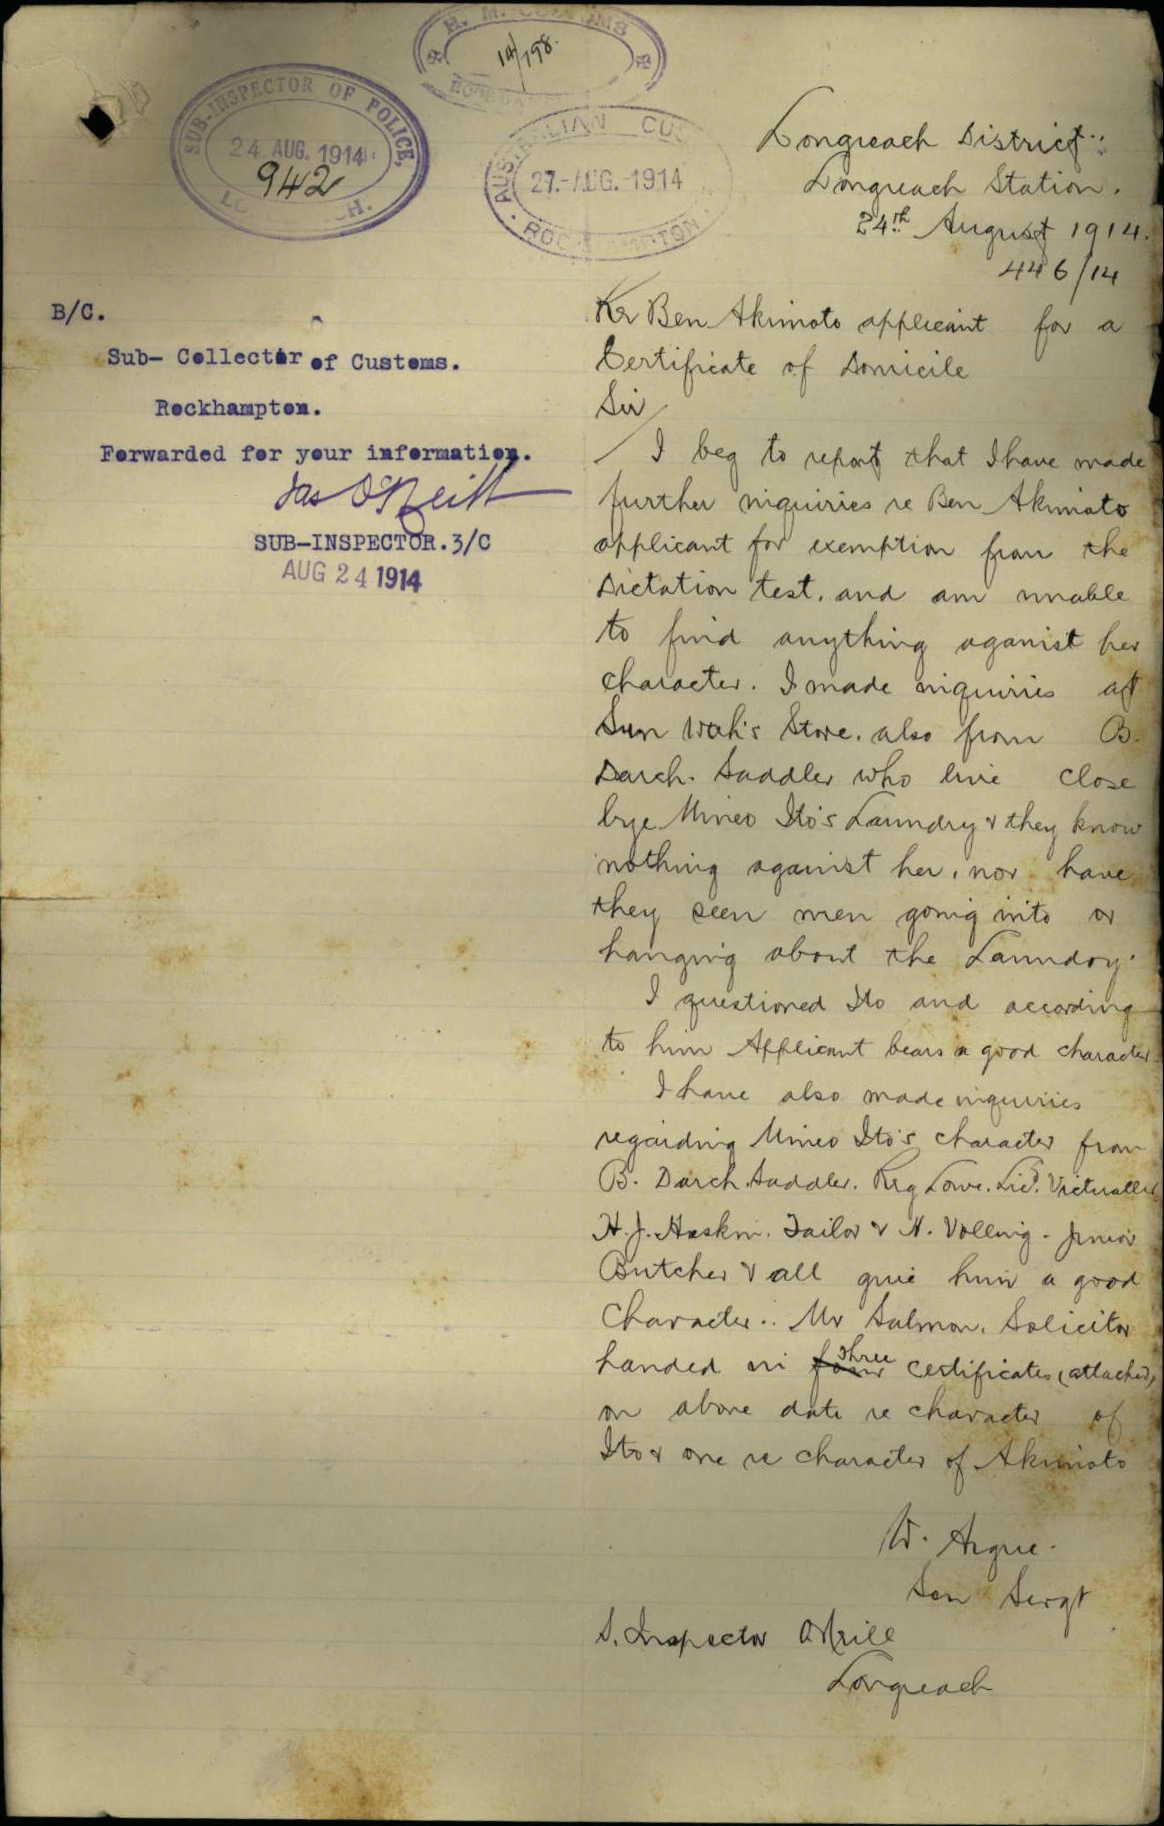 H. M. CUSTOMS
14/798.
SUB-INSPECTOR OF POLICE,
24 AUG. 1914
942
L H.
AUSTRALIAN CU
27.-AUG.-1914
ROC MPTON
Longreach District
Longreach Station.
24th August 1914.
446/14
B/C.
Sub- Collector of Customs.
Rockhampton.
Forwarded for your information.
Jas O'Neill
SUB-INSPECTOR.3/C
AUG 24 1914
Re Ben Akimoto applicant for a
Certificate of Domicile
Sir
I beg to report that I have made
further inquiries re Ben Akimoto
applicant for exemption from the
Dictation test. and am unable
to find anything aganist her
character. I made inquiries at
Sun Wah's Store. also from B.
Darch. Saddler who live close
bye Mineo Ito's Laundry & they know
nothing against her, nor have
they seen men going into or
hanging about the Laundry.
I questioned Ito and according
to him Applicant bears a good character
I have also made inquiries
regarding Mineo Ito's character from
B. Darch. Saddler. Reg Lowe. Licd. Victualler
H. J. Haskin. Tailor & H. Volling. Junior
Butcher & all give him a good
Character. Mr Salmon. Solicitor
handed in four three certificates (attached)
on above date re character of
Ito & one re character of Akimoto
W. Argue.
Sen Sergt
S. Inspector O'Neill
Longreach